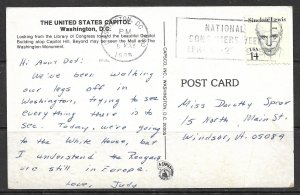 THE UNITED STATES CAPITOL
Washington, D.C.
Looking from the Library of Congress toward the beautiful Capitol
Building atop Capitol Hill. Beyond may be seen the Mall and The
Washington Monument.
PM
1985
NATIONAL
Sinclair Lewis
USA
14
Hi Aunt Dot!
We've been walking
our legs off in
Washington, trying to see
everything there is to
see. Today, we're going
to the White House, but
I understand the Reagans
are still in Europe.
Love, Judy
POST CARD
Miss Dorothy Spror
15 North Main St.
Windsor, Vt. 05089